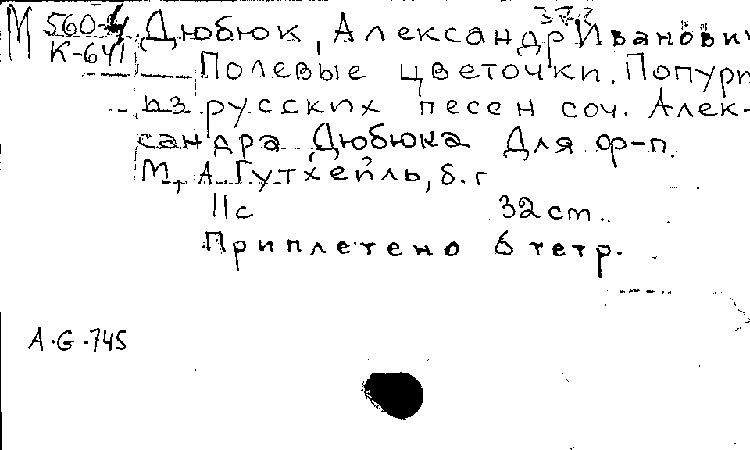 373
М 560-4 Дюбюк, Александр Иванович
К-641 Полевые цветочки. Попурри
из русских песен соч. Алек-
сандра Дюбюка Для ф-п.
М, А. Гутхейль, б. г
11с 32 cm.
Приплетено 6 тетр.
A.G.-745